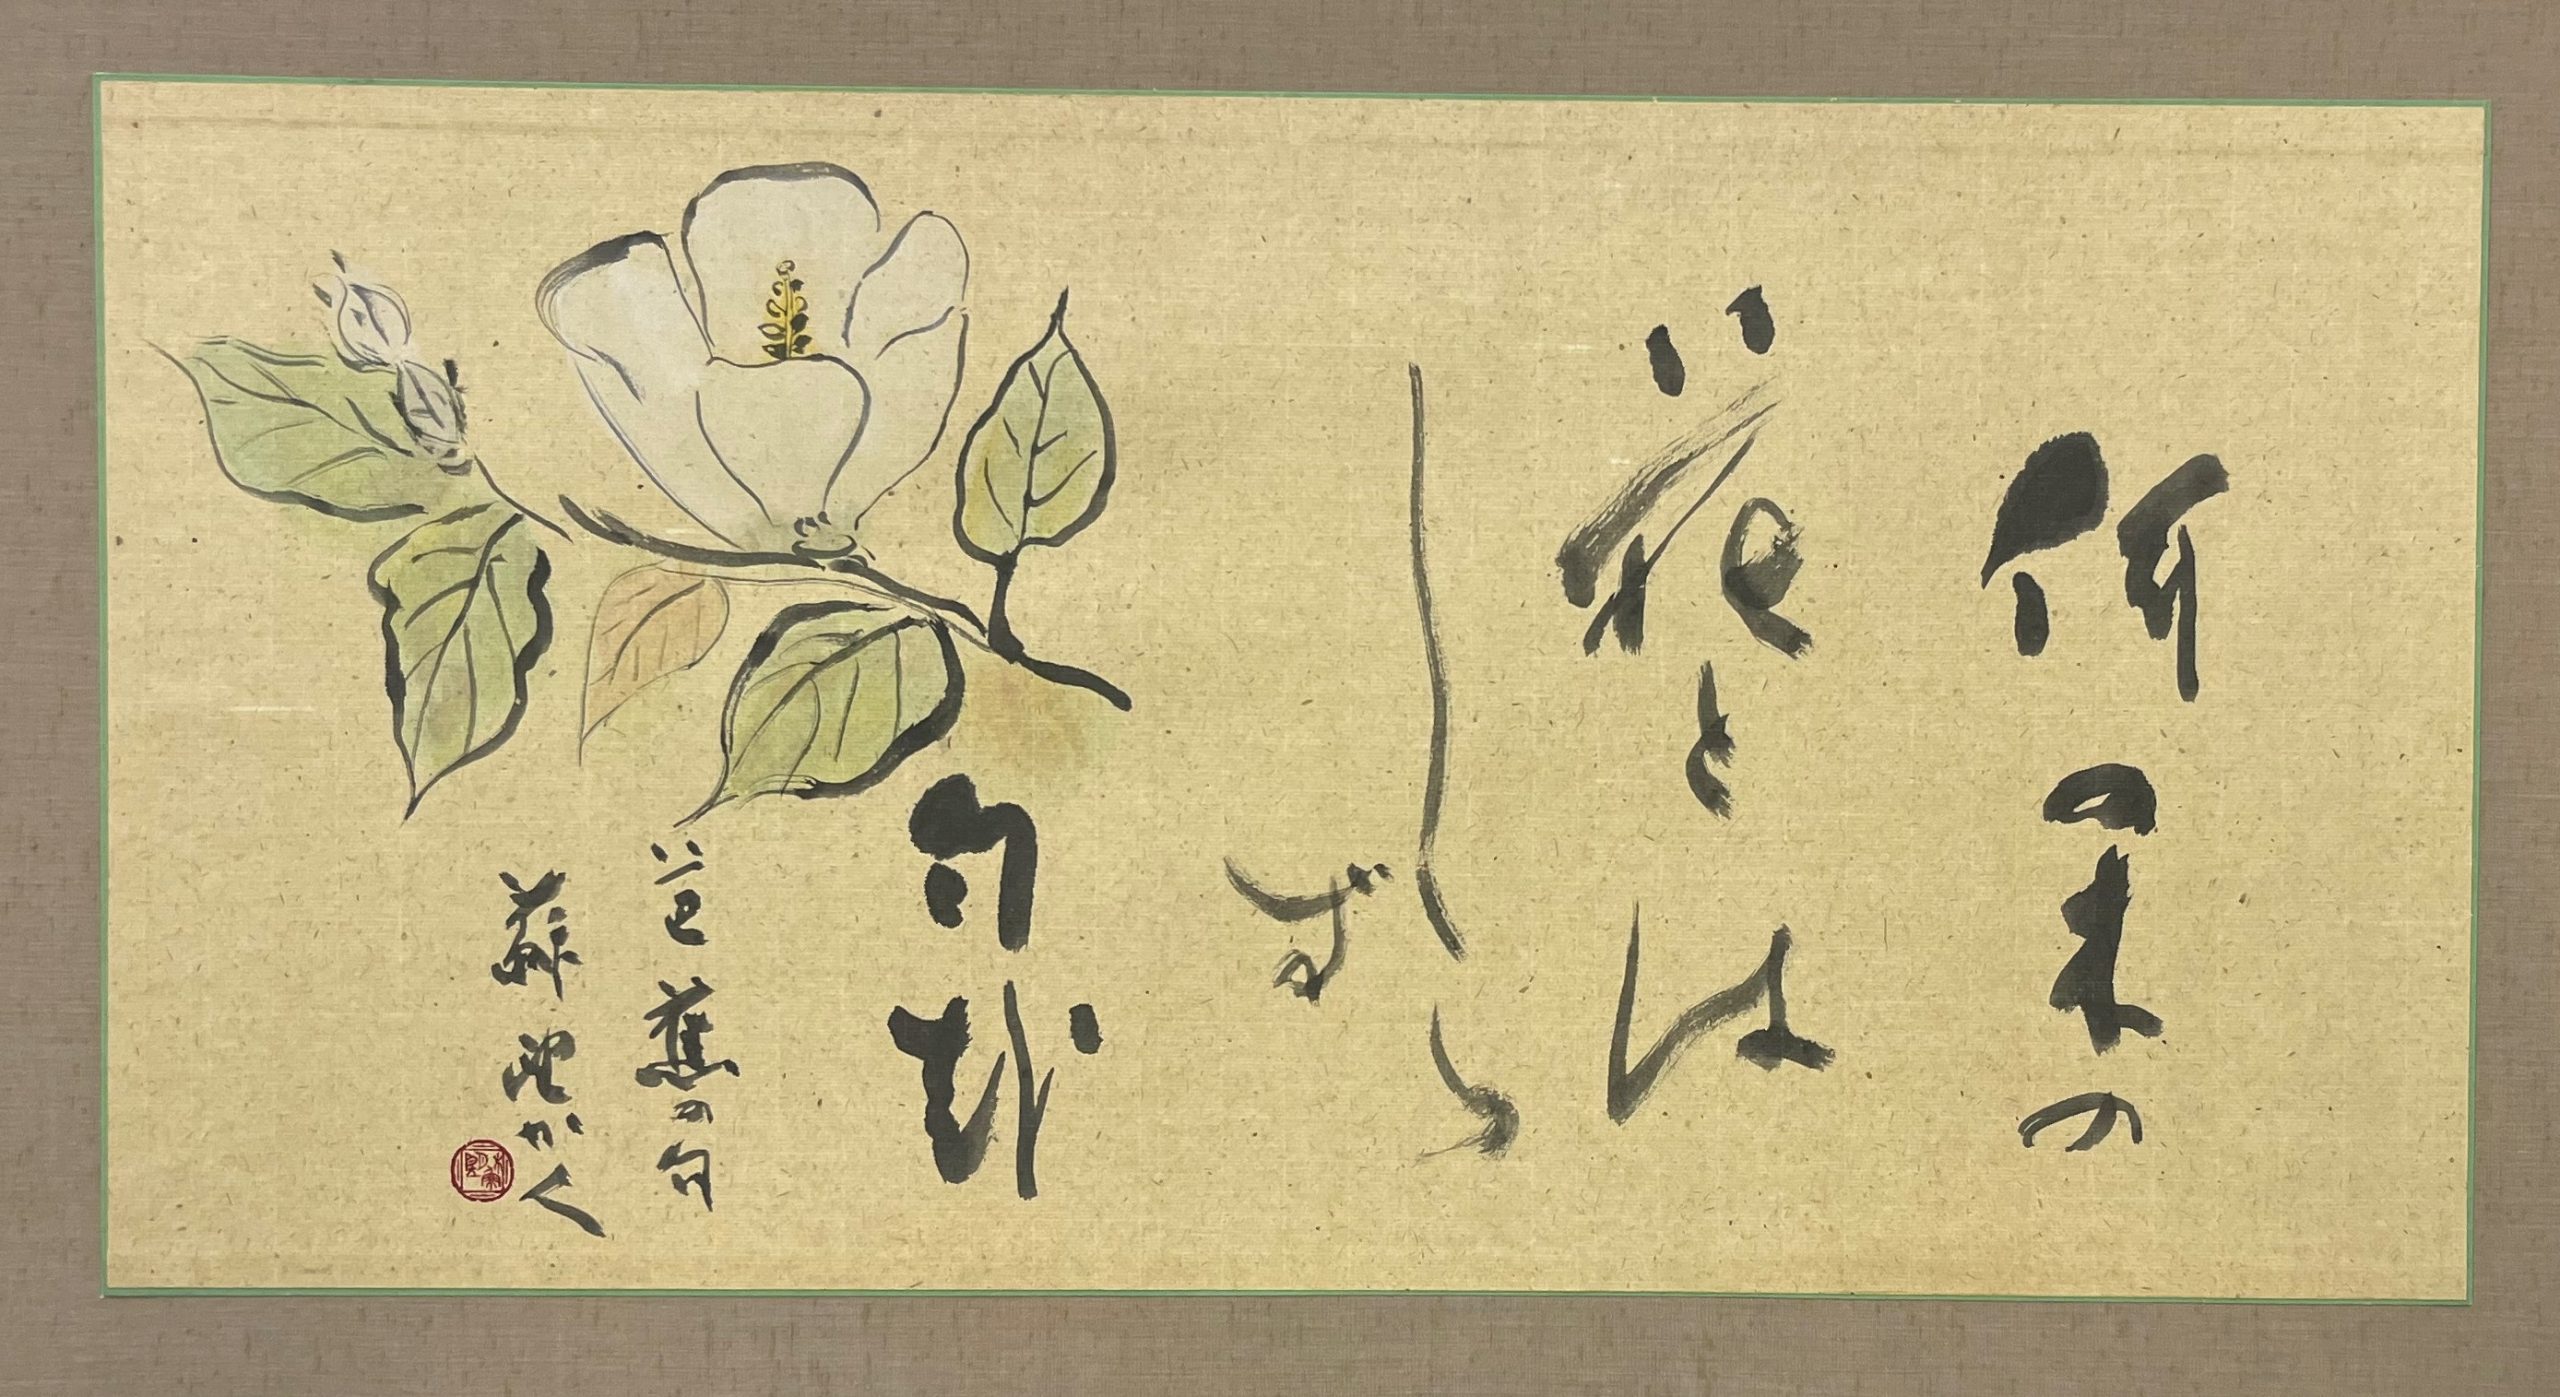 何の木の
花とは
しらず
匂哉
芭蕉の句
蘇かく